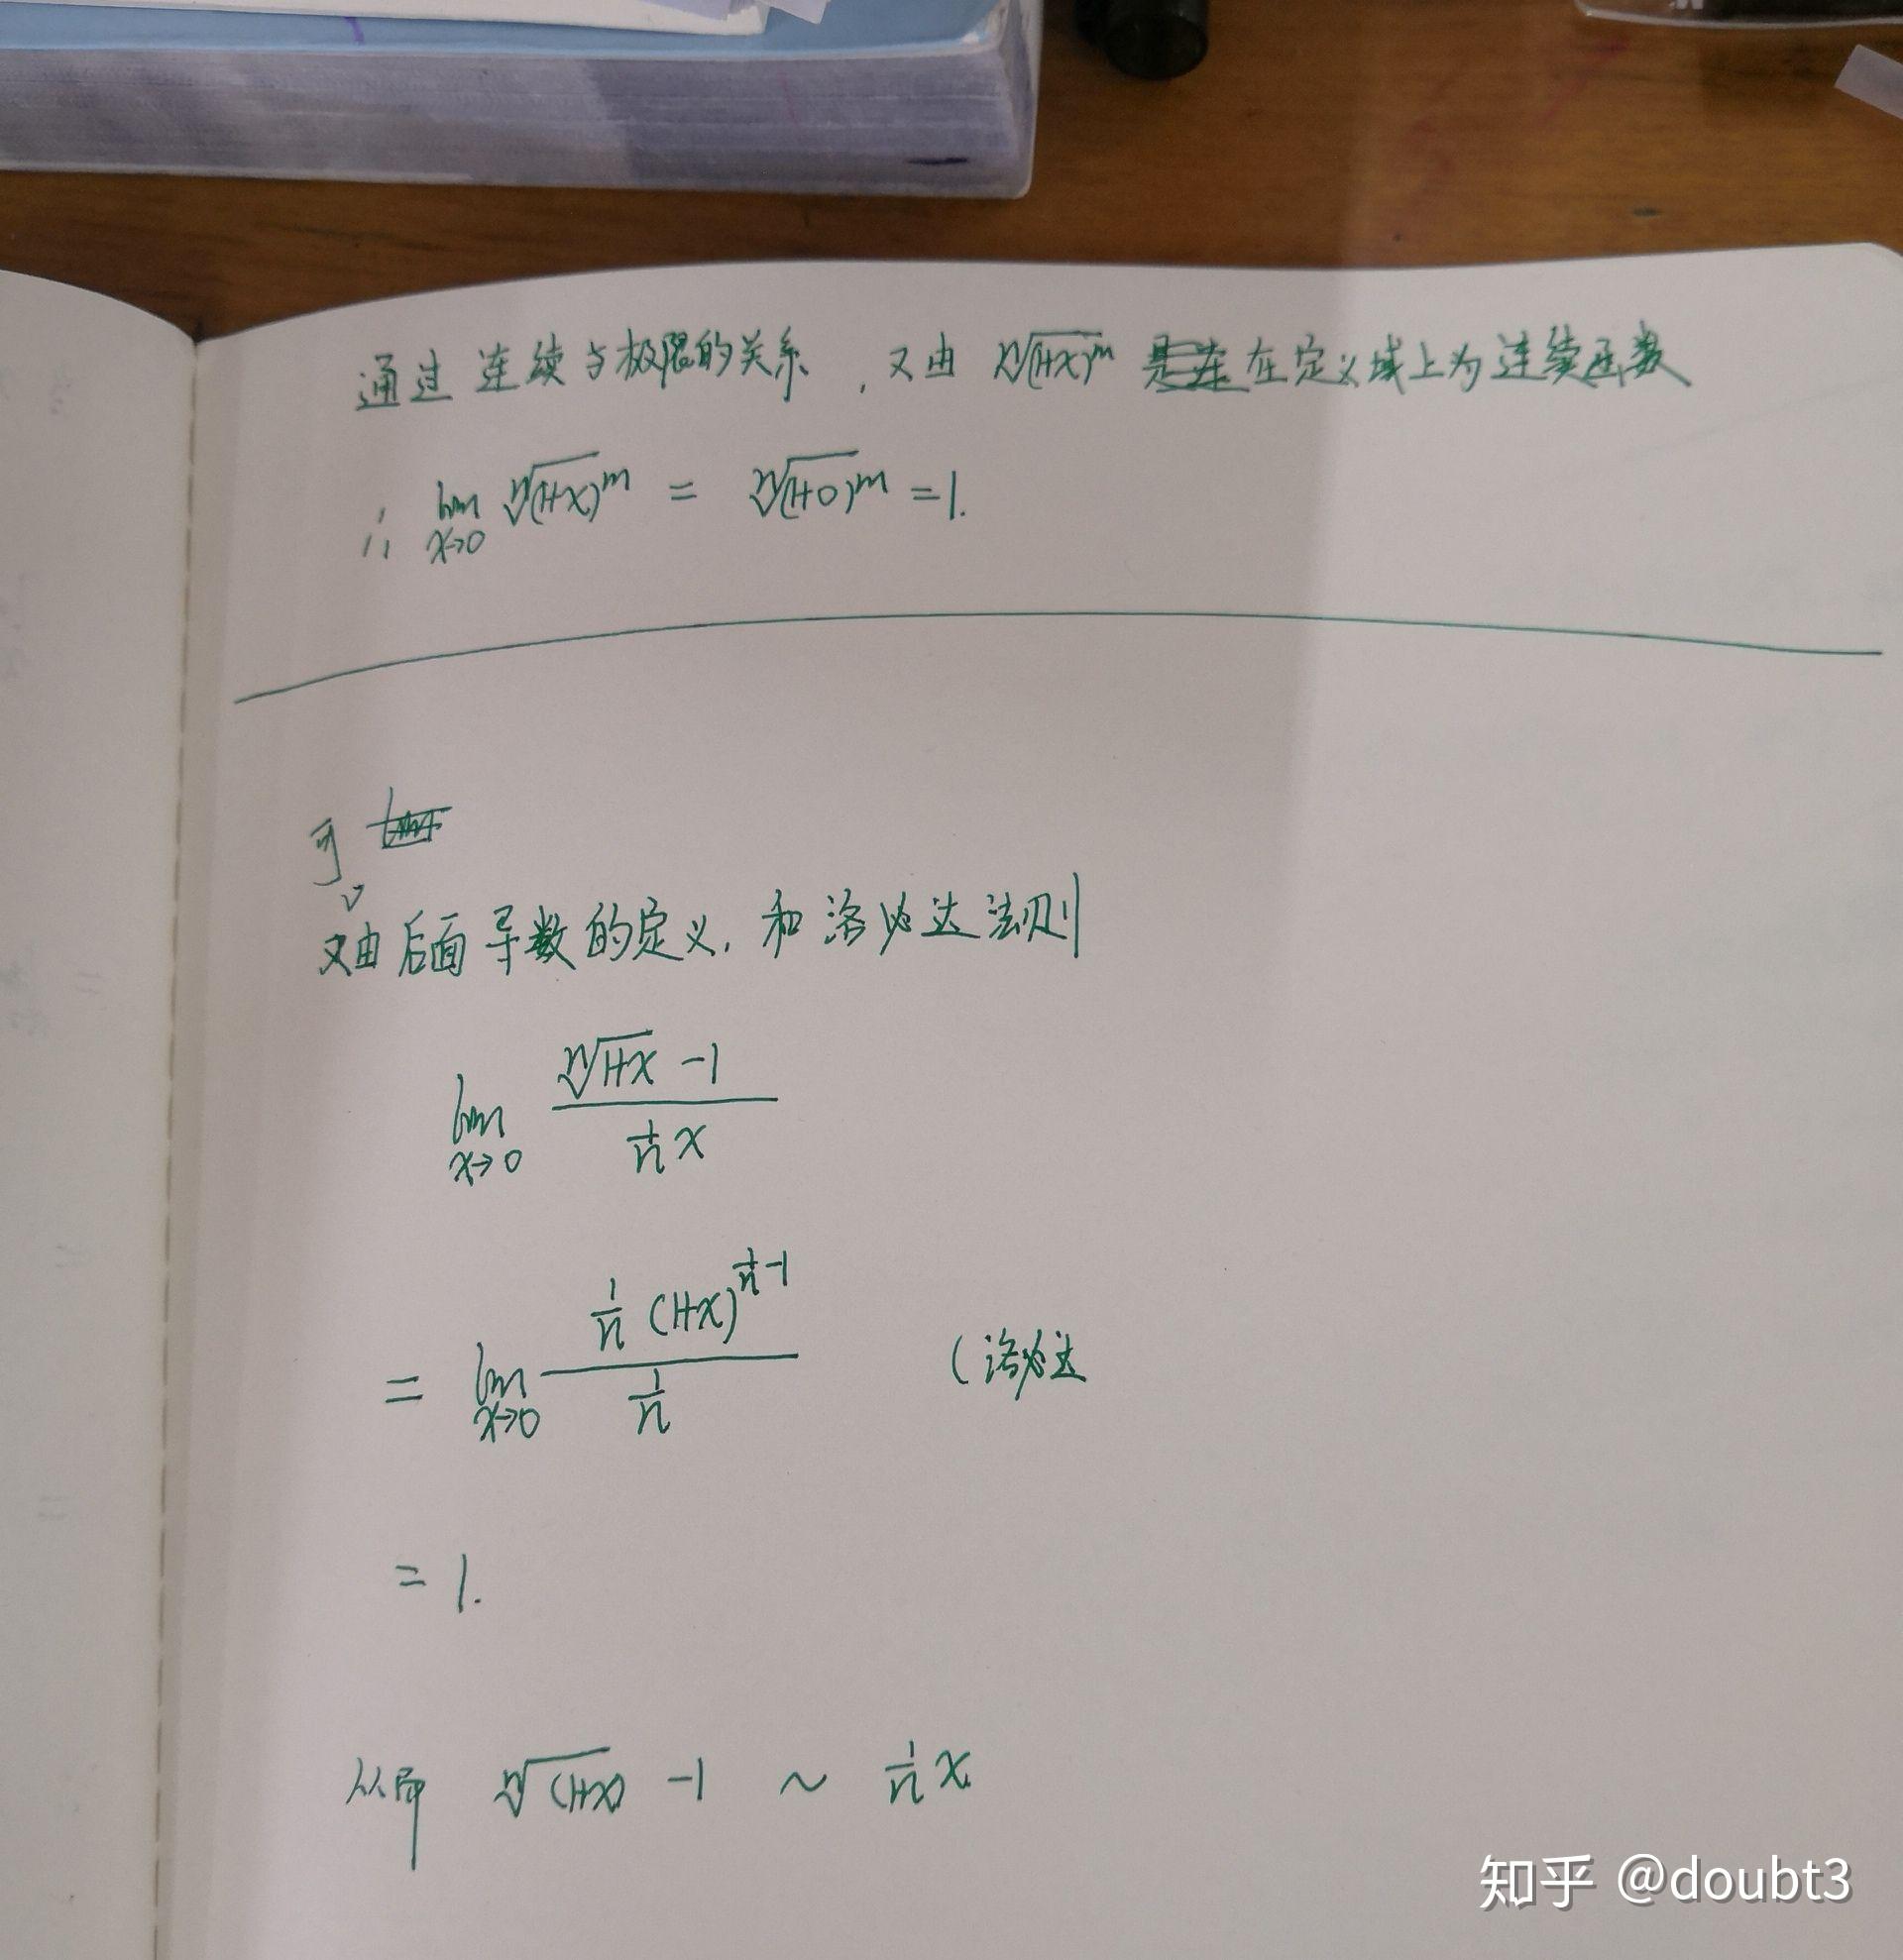 通过 连续与极限的关系，又由 ⁿ√(1+x)^m 在定义域上为连续函数
∴ lim x→0 ⁿ√(1+x)^m = ⁿ√(1+0)^m = 1.
可
又由后面导数的定义, 和洛必达法则
lim x→0 (ⁿ√1+x -1) / (1/n x)
= lim x→0 (1/n (1+x)^(1/n -1)) / (1/n) (洛必达
= 1.
从而 ⁿ√(1+x) -1 ~ 1/n x
知乎 @doubt3